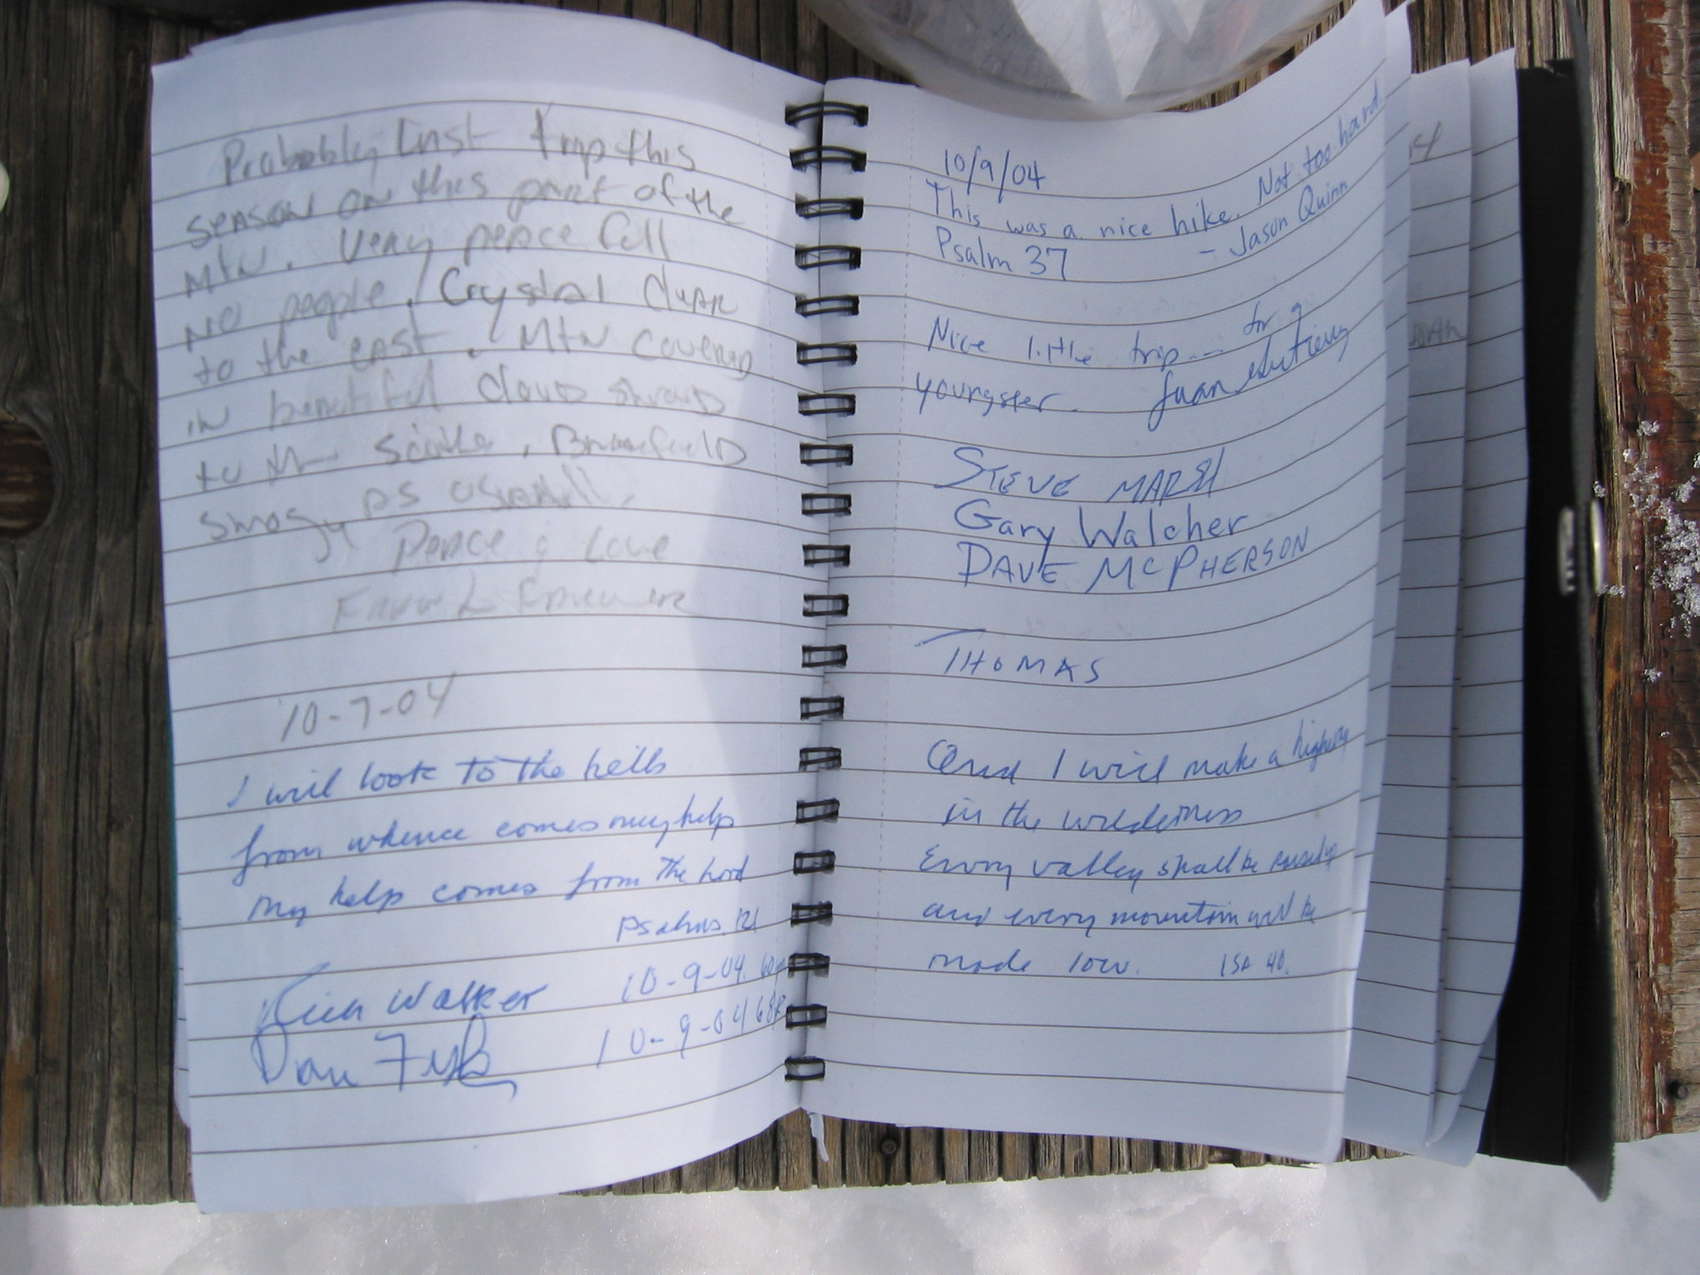 Probably Last trip this
season on this part of the
Mtn. Very peace full
No people. Crystal clear
to the east. Mtn covered
in beautiful cloud shroud
to the
smogy as usuall.
Peace & Love
10-7-04
I will look to the hills
from whence comes my help
my help comes from the Lord
Psalms 121
Rich Walker 10-9-04
Dan 10-9-04
10/9/04
This was a nice hike. Not too hard
Psalm 37 - Jason Quinn
Nice little trip --- for a
youngster. Juan
STEVE MARSH
Gary Walcher
DAVE MCPHERSON
THOMAS
And I will make a highway
in the wilderness
Every valley shall be raised up
and every mountain will be
made low. ISA 40.